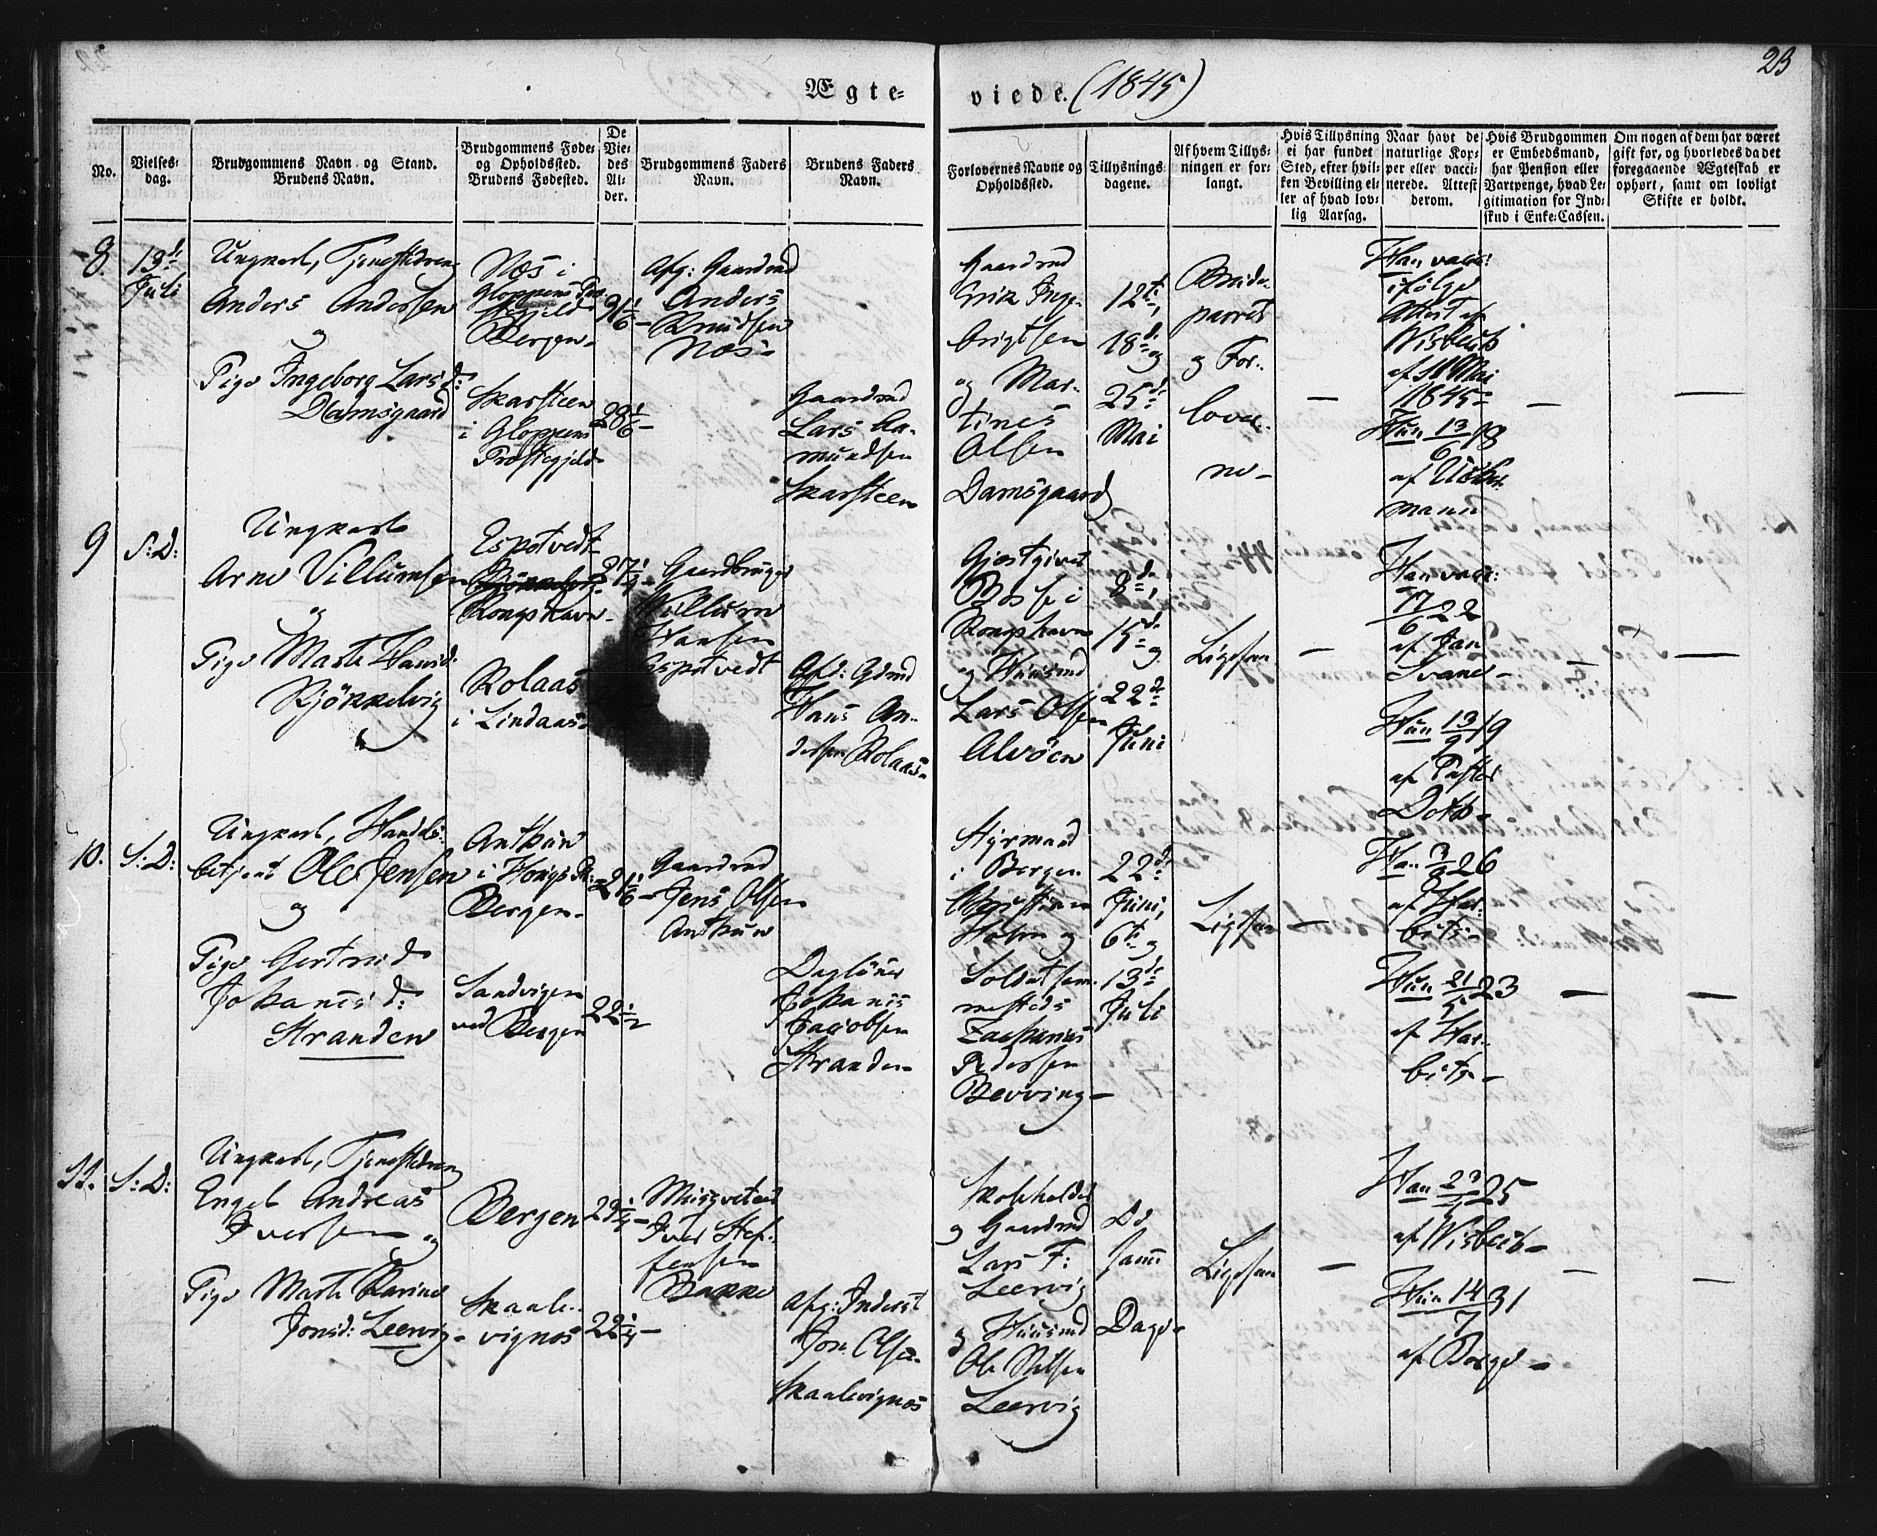 23
Ægte-
viede. (1845)
No.
Vielses-
dag.
Brudgommens Navn og Stand.
Brudens Navn.
Brudgommens Føde-
og Opholdssted.
Brudens Fødested.
De
Vie-
des
Al-
der.
Brudgommens Faders
Navn.
Brudens Faders
Navn.
Forlovernes Navne og
Opholdssted.
Tillysnings-
dagene.
Af hvem Tillys-
ningen er for-
langt.
Hvis Tillysning
ei har fundet
Sted, efter hvil-
ken Bevilling el-
ler af hvad lov-
lig Aarsag.
Naar havt de
naturlige Kop-
per eller vacci-
nerede. Attest
derom.
Hvis Brudgommen
er Embedsmand,
har Pension eller
Vartpenge, hvad Le-
gitimation for Ind-
skud i Enke-Cassen.
Om nogen af dem har været
gift før, og hvorledes da det
foregaaende Ægteskab er
ophørt, samt om lovligt
Skifte er holdt.
8.
13d
Juli
Ungkarl, Tjenestedreng
Anders Anderssen
og
Pige Ingeborg Larsd:
Damsgaard
Næs i
Gloppens Præ-
stegjeld
Bergen-
Skarsteen
i Gloppens
Præstegjeld
31 1/6-
28 1/6-
Afg: Gaardmd
Anders
Knudsen
Næs-
Gaardmd
Lars Ra-
mundsen
Skarsteen
Gaardmd
Erik Inge-
brigtsen
og Mar-
tines
Olsen
Damsgaard
12te,
18de og
25de
Mai
Brude-
parret
og For-
lover-
ne-
-
Han vacc:
ifølge
Attest af
Wisbech
af 11 Mai
1845-
Hun 13/6 18
af Uchermann
-
-
9
S:D:
Ungkarl
Arne Villumsen
og
Pige Marte Hansd:
Kjökkelvig
Espetvedt
Kongshavn-
Rolaas
i Lindaas-
27 1/4-
Gaardbruger
Willum
Hansen
Espetvedt
Afd: Gdmd
Hans An-
dersen Rolaas-
Gjestgiver
Bos i
Kongshavn
og Huusmd
Lars Olsen
Alvöen
8de,
15de og
22de
Juni
Ligesaa
-
Han vacc:
17/6 22
af Jan
Svane-
Hun 13/9 19
af Pastor
Doth-
-
-
10.
S:D:
Ungkarl, Handels-
betjent Ole Jensen
og
Pige Gertrud
Johanisd:
Stranden
Anthun
i Hougs Pr:
Bergen-
Sandvigen
ved Bergen
21 1/6-
22 1/2
Gaardmd
Jens Olsen
Anthun
Daglöner
Johanis
Jacobsen
Stranden-
Styrmand
i Bergen
Christian
Holm og
Soldat sam-
mesteds
Zacharias
Pedersen
Bevving-
22de
Juni,
6te og
13de
Juli
Ligesaa
-
Han 3/8 26
af Har-
bitz-
Hun 21/5 23
af Har-
bitz-
-
-
11.
S:D:
Ungkarl, Tjenestedreng
Engel Andreas
Iversen og
Pige Marte Karine
Jonsd: Leervig-
Bergen
Skaale-
vignæs
23 1/4-
22 1/4-
Iver Stef-
fensen
Bakke
Afg: Inderst
Jon Olsen
Skaalevignæs
Skoleholder
og Gaardmd
Lars F:
Leervig
og Huusmd
Ole Nilsen
Leervig
De
samme
Dage-
Ligesaa
-
25
af Wisbech-
Hun 14/7 31
af Borge-
-
-